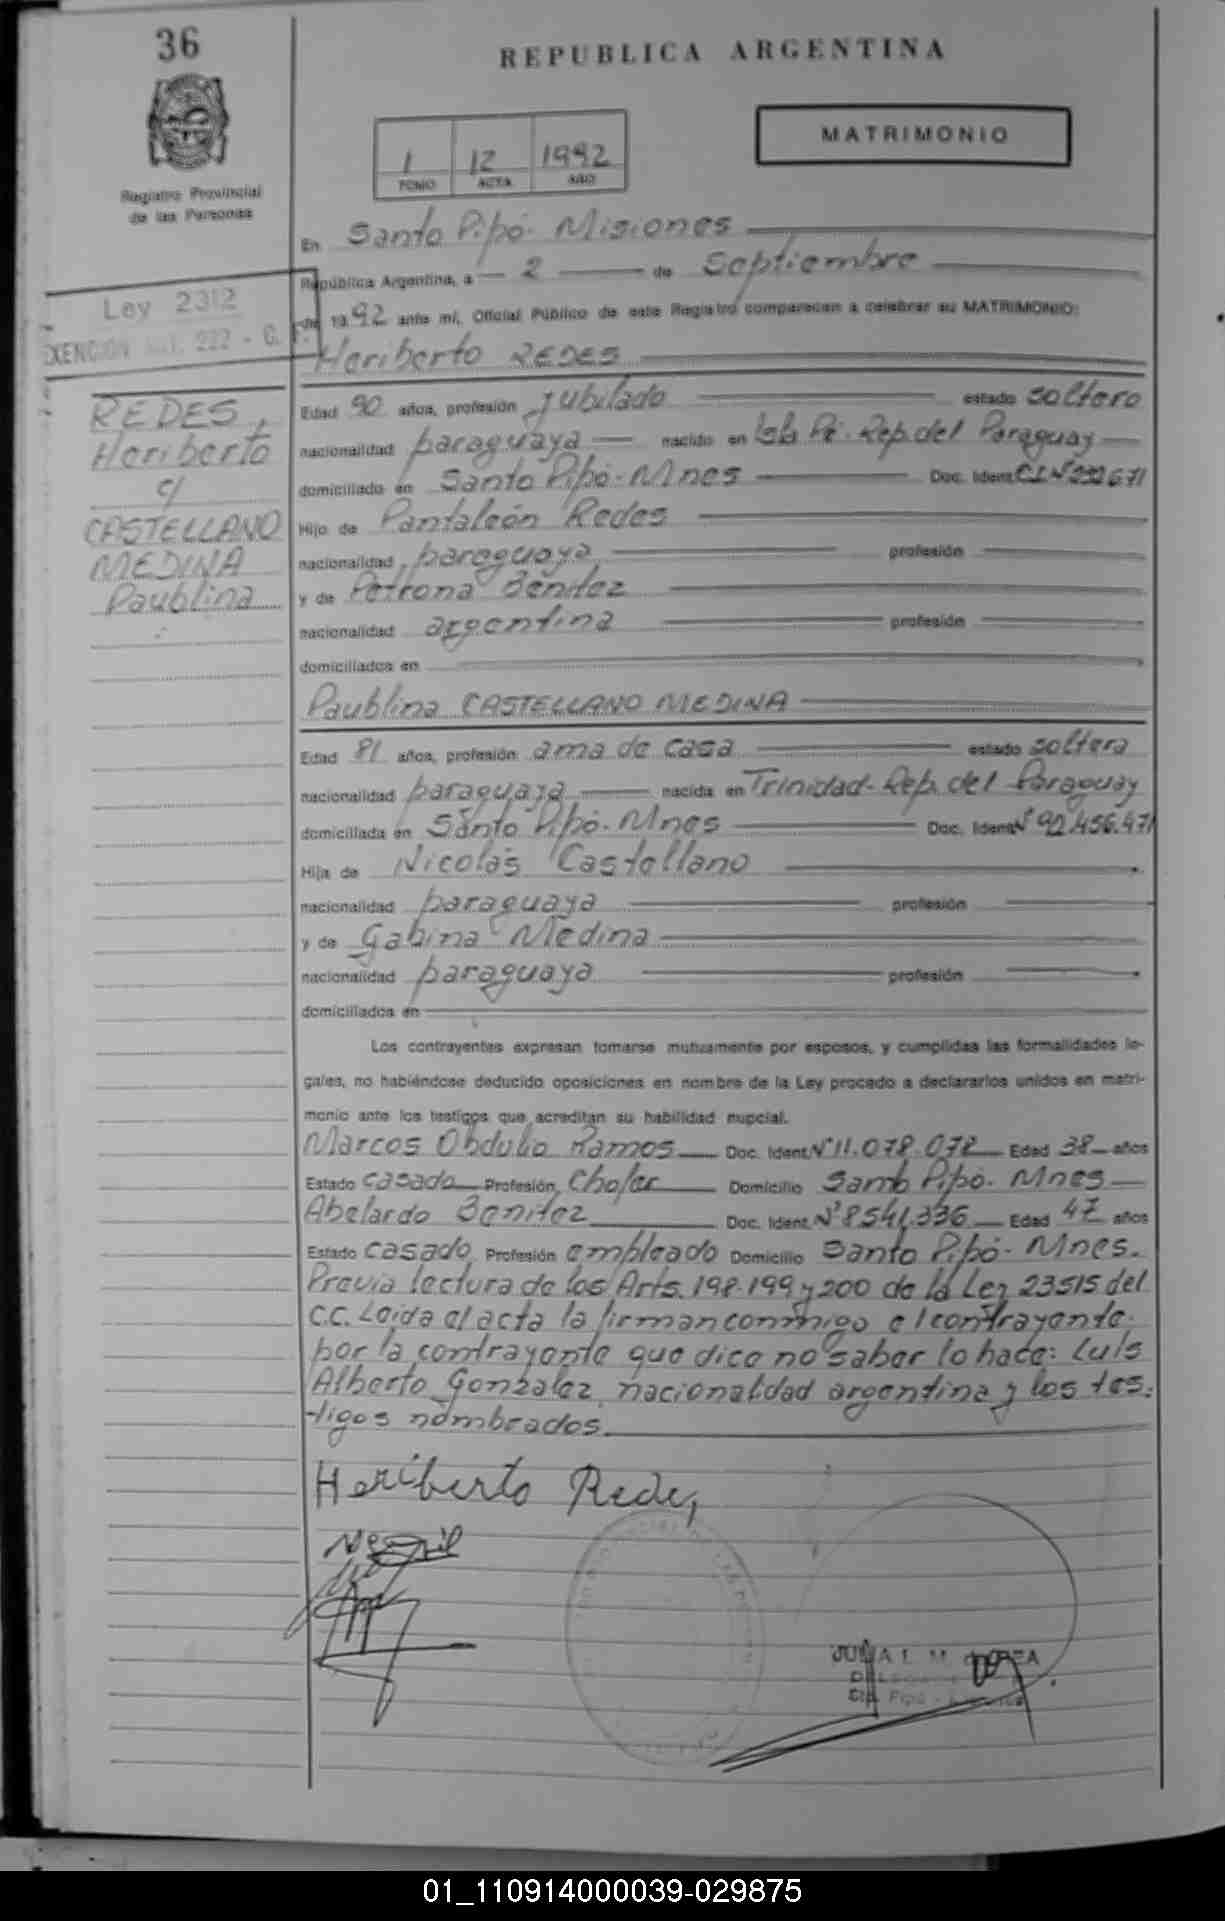 36
REPUBLICA ARGENTINA
Registro Provincial
de las Personas
1 12 1992
TOMO ACTA AÑO
MATRIMONIO
En Santo Pipó - Misiones
República Argentina, a 2 de Septiembre
Ley 2312
EXENCION 222 - 6.
de 1992 ante mí, Oficial Público de este Registro comparecen a celebrar su MATRIMONIO:
Heriberto REDES
REDES,
Heriberto
c/
CASTELLANO
MEDINA
Paublina
Edad 90 años, profesión jubilado estado soltero
nacionalidad paraguaya nacido en Isla Pé - Rep. del Paraguay
domiciliado en Santo Pipó - Mnes Doc. Ident. C.I. Nº
Hijo de Pantaleón Redes
nacionalidad paraguaya profesión
y de Petrona Benitez
nacionalidad argentina profesión
domiciliados en
Paublina CASTELLANO MEDINA
Edad 81 años, profesión ama de casa estado soltera
nacionalidad paraguaya nacida en Trinidad - Rep. del Paraguay
domiciliada en Santo Pipó - Mnes Doc. Ident. Nº 92.456.471
Hija de Nicolás Castellano
nacionalidad paraguaya profesión
y de Gabina Medina
nacionalidad paraguaya profesión
domiciliados en
Los contrayentes expresan tomarse mutuamente por esposos, y cumplidas las formalidades le-
gales, no habiéndose deducido oposiciones en nombre de la Ley procedo a declararlos unidos en matri-
monio ante los testigos que acreditan su habilidad nupcial.
Marcos Obdulio Ramos Doc. Ident. Nº 11.078.078 Edad 38 años
Estado casado Profesión Chofer Domicilio Santo Pipó - Mnes
Abelardo Benitez Doc. Ident. Nº 8541.336 Edad 47 años
Estado casado Profesión empleado Domicilio Santo Pipó - Mnes.
Previa lectura de los Arts. 198-199 y 200 de la Ley 23515 del
C.C. Leida el acta la firman conmigo el contrayente.
por la contrayente que dice no saber lo hace: Luis
Alberto Gonzalez, nacionalidad argentina y los tes-
tigos nombrados.
Heriberto Redes
JULIA
01_110914000039-029875